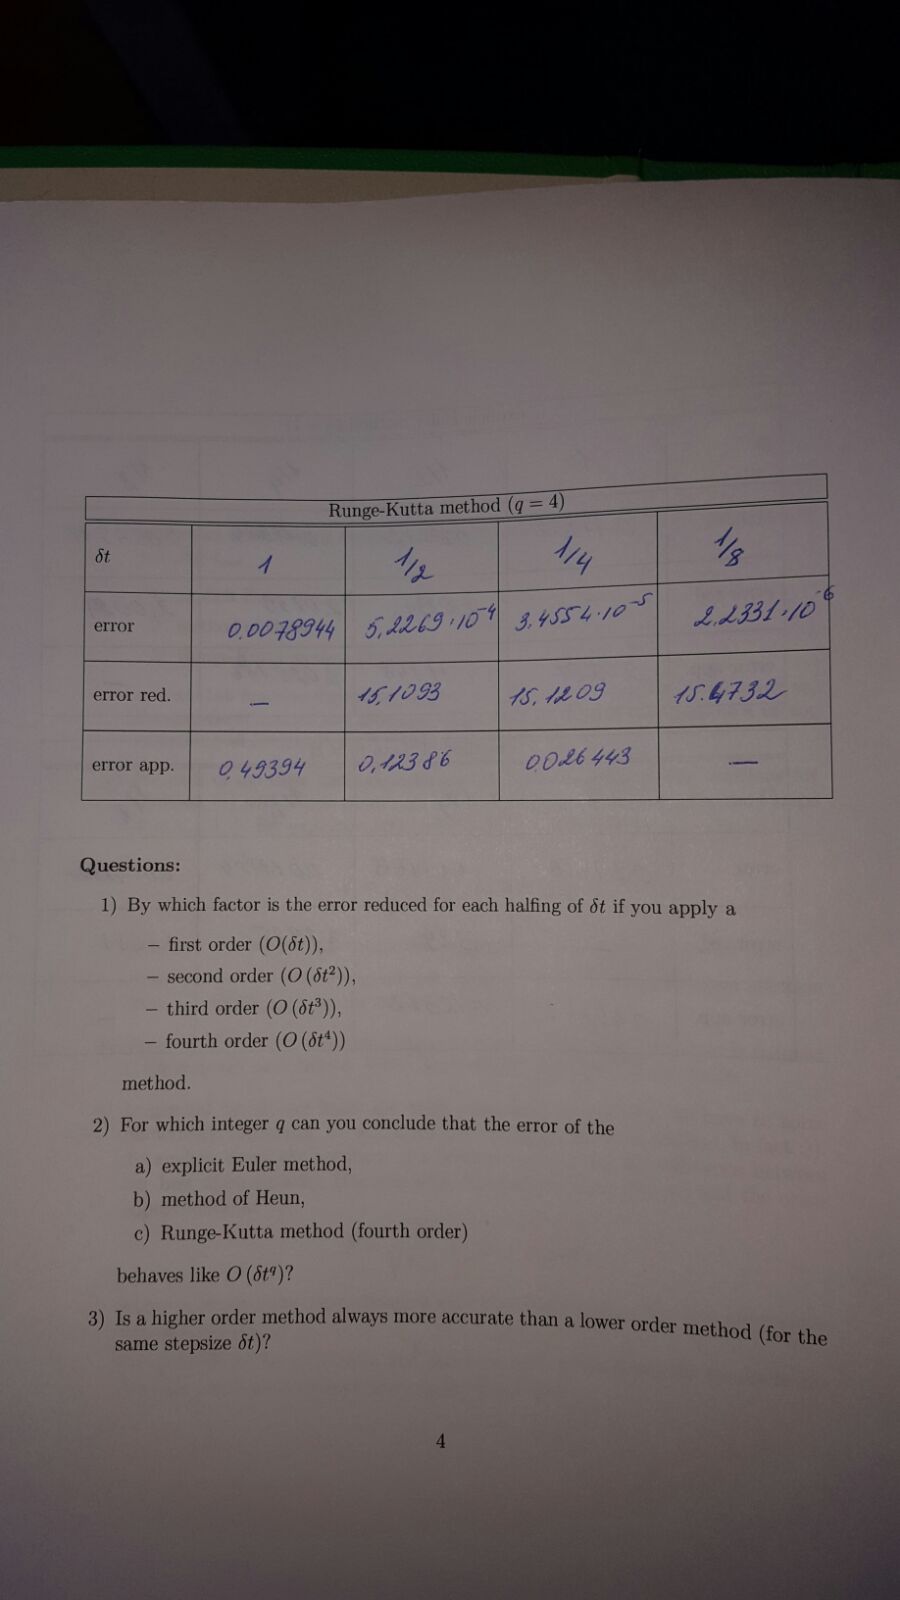 Runge-Kutta method (q = 4)
δt 1 1/2 1/4 1/8
error 0.0078944 5,2269·10⁻⁴ 3,4554·10⁻⁵ 2,2331·10⁻⁶
error red. — 15,1093 15,1209 15.4732
error app. 0,49394 0,12386 0.026443 —
Questions:
1) By which factor is the error reduced for each halfing of δt if you apply a
– first order (O(δt)),
– second order (O (δt²)),
– third order (O (δt³)),
– fourth order (O (δt⁴))
method.
2) For which integer q can you conclude that the error of the
a) explicit Euler method,
b) method of Heun,
c) Runge-Kutta method (fourth order)
behaves like O (δt^q)?
3) Is a higher order method always more accurate than a lower order method (for the
same stepsize δt)?
4